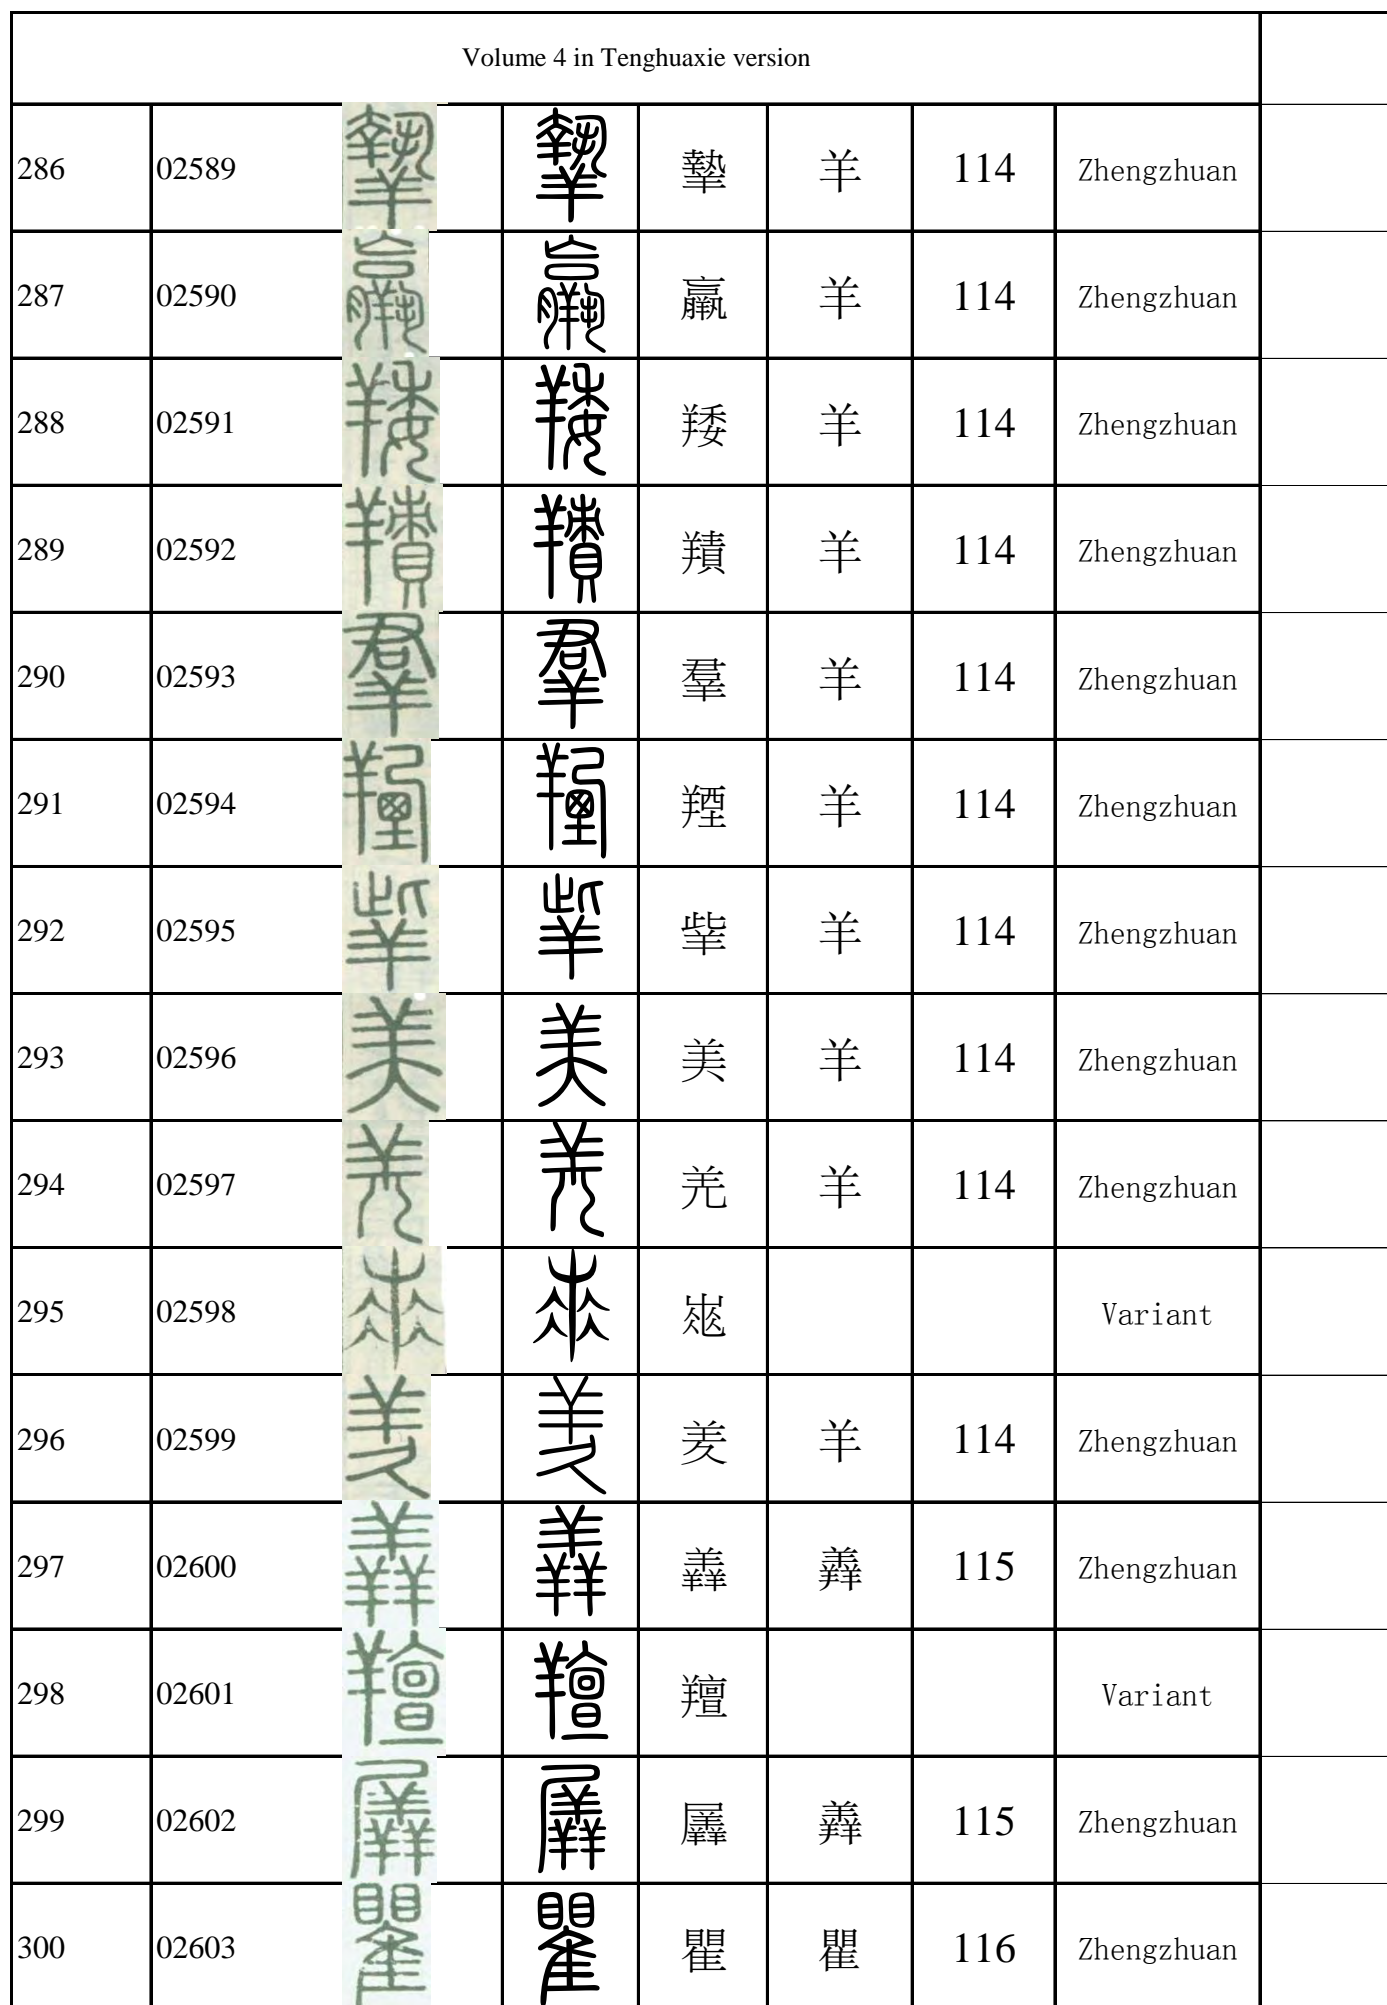 Volume 4 in Tenghuaxie version
286 02589 羊 114 Zhengzhuan
287 02590 羸 羊 114 Zhengzhuan
288 02591 羊 114 Zhengzhuan
289 02592 羊 114 Zhengzhuan
290 02593 羣 羊 114 Zhengzhuan
291 02594 羥 羊 114 Zhengzhuan
292 02595 羊 114 Zhengzhuan
293 02596 美 羊 114 Zhengzhuan
294 02597 羌 羊 114 Zhengzhuan
295 02598 Variant
296 02599 羑 羊 114 Zhengzhuan
297 02600 羴 羴 115 Zhengzhuan
298 02601 羶 Variant
299 02602 羼 羴 115 Zhengzhuan
300 02603 瞿 瞿 116 Zhengzhuan